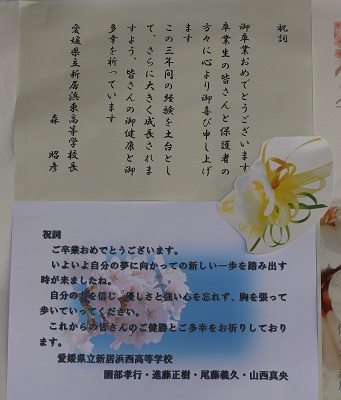 祝詞
御卒業おめでとうございます
卒業生の皆さんと保護者の
方々に心より御喜び申し上げ
ます
この三年間の経験を土台とし
て、さらに大きく成長されま
すよう、皆さんの御健康と御
多幸を祈っています
愛媛県立新居浜東高等学校長
森 昭彦
祝詞
ご卒業おめでとうございます。
いよいよ自分の夢に向かっての新しい一歩を踏み出す
時が来ましたね。
自分の力を信じ、優しさと強い心を忘れず、胸を張って
歩いていってください。
これからの皆さんのご健勝とご多幸をお祈りしており
ます。
愛媛県立新居浜西高等学校
園部孝行・進藤正樹・尾藤義久・山西真央